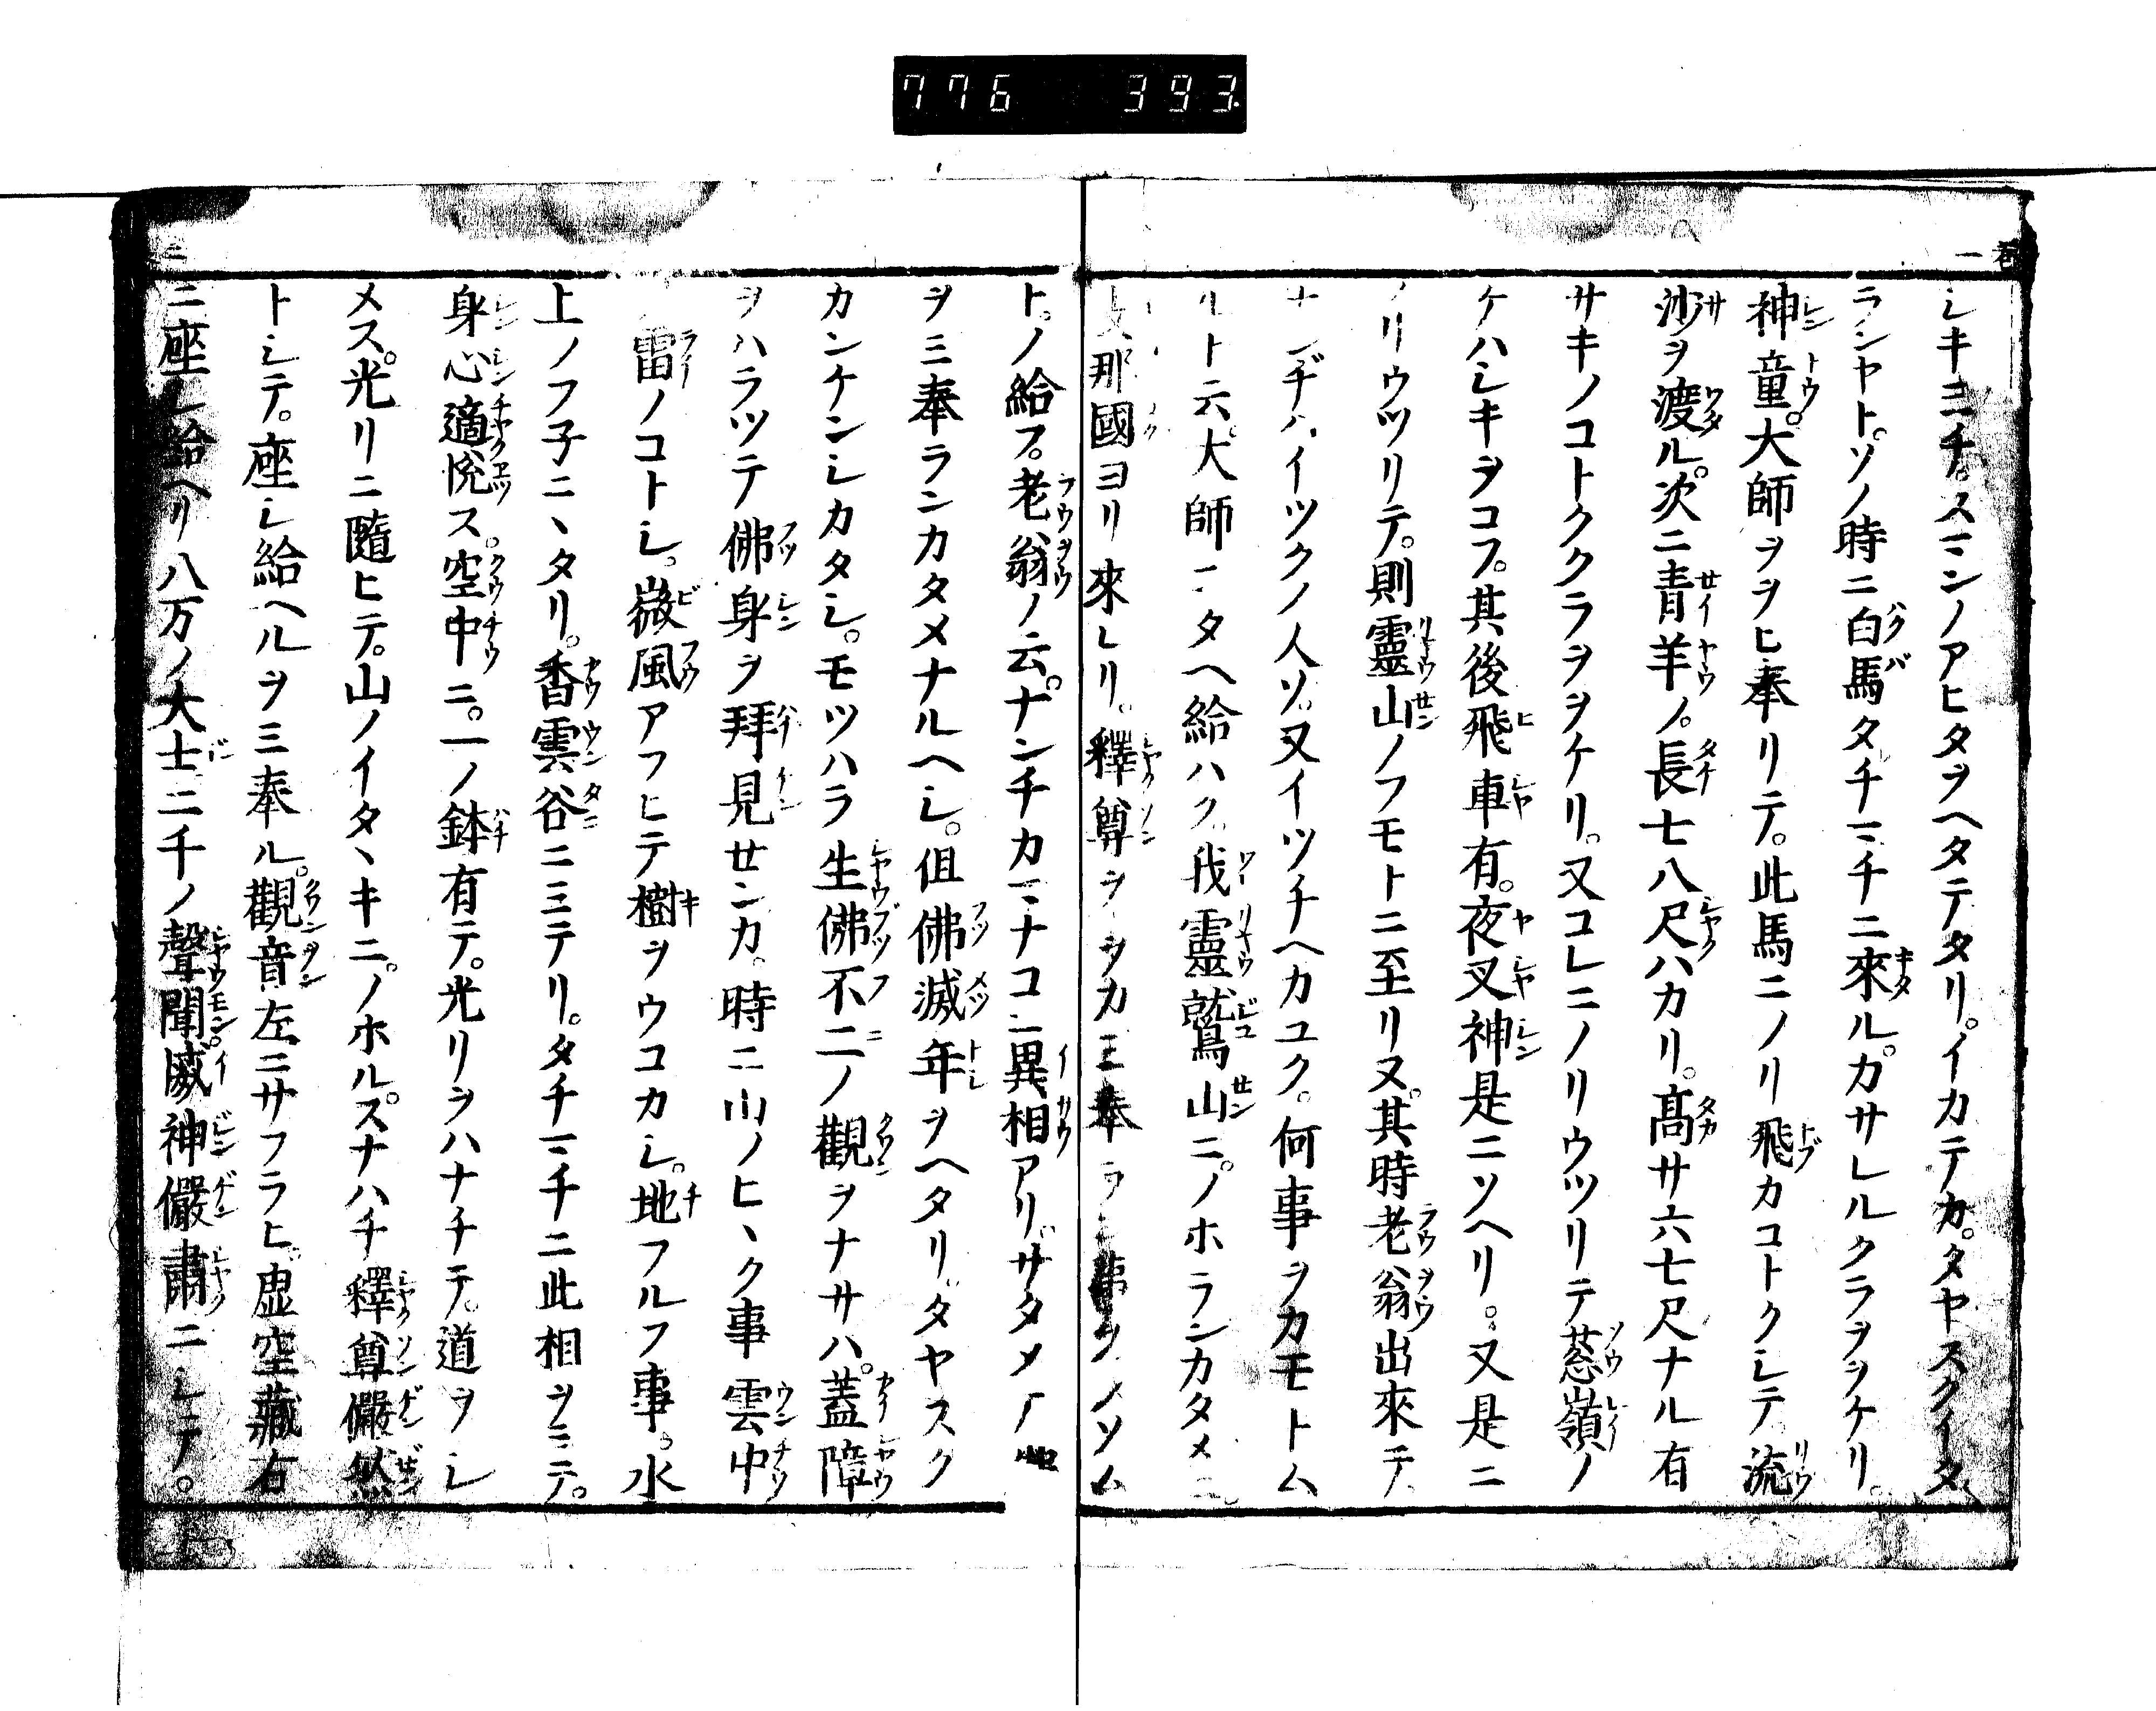 776 393
巻一
シキミチ。スマンノアヒタヲヘタテタリ。イカテカ。タヤスクイタ
ランヤト。ソノ時ニ白馬タチマチニ來ル。カサレルクラヲヲケリ。
神童。大師ヲヲヒ奉リテ。此馬ニノリ飛カコトクシテ。流
沙ヲ渡ル。次ニ青羊ノ。長七八尺ハカリ。髙サ六七尺ナル有
サキノコトククラヲヲケリ。又コレニノリウツリテ葱嶺ノ
ケハシキヲコフ。其後飛車有。夜叉神是ニソヘリ。又是ニ
ノリウツリテ。則靈山ノフモトニ至リヌ。其時老翁出來テ。
ナンヂハイツクノ人ソ。又イツチヘカユク。何事ヲカモトム
ルト云。大師コタヘ給ハク。我靈鷲山ニ。ノホランカタメニ。
支那國ヨリ來レリ。釋尊ヲヲカミ奉ラン事ヲノソム
ト。ノ給フ。老翁ノ云。ナンチカマナコニ異相アリ。サタメテ
ヲミ奉ランカタメナルヘシ。但佛滅年ヲヘタリ。タヤスク
カンケンシカタシ。モツハラ生佛不二ノ觀ヲナサハ。蓋障
ヲハラツテ佛身ヲ拜見せンカ。時ニ山ノヒヽク事雲中
雷ノコトシ。微風アフヒテ樹ヲウコカシ。地フルフ事。水
上ノフ子ニヽタリ。香雲谷ニミテリ。タチマチニ此相ヲミテ。
身心適悅ス。空中ニ。一ノ鉢有テ。光リヲハナチテ。道ヲシ
メス。光リニ隨ヒテ。山ノイタヽキニ。ノホル。スナハチ釋尊儼然
トシテ。座シ給ヘルヲミ奉ル。觀音左ニサフラヒ。虚空藏右
ニ座シ給ヘリ八万ノ大士二千ノ聲聞。威神儼肅ニシテ。